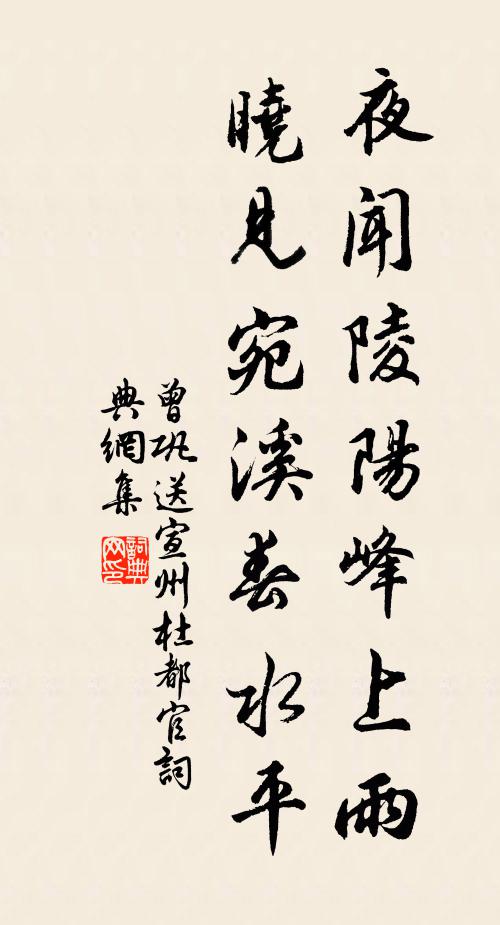 夜聞陵陽峰上雨
曉見宛溪春水平
曾鞏送宣州杜都官詞
典網集
詞典
网印